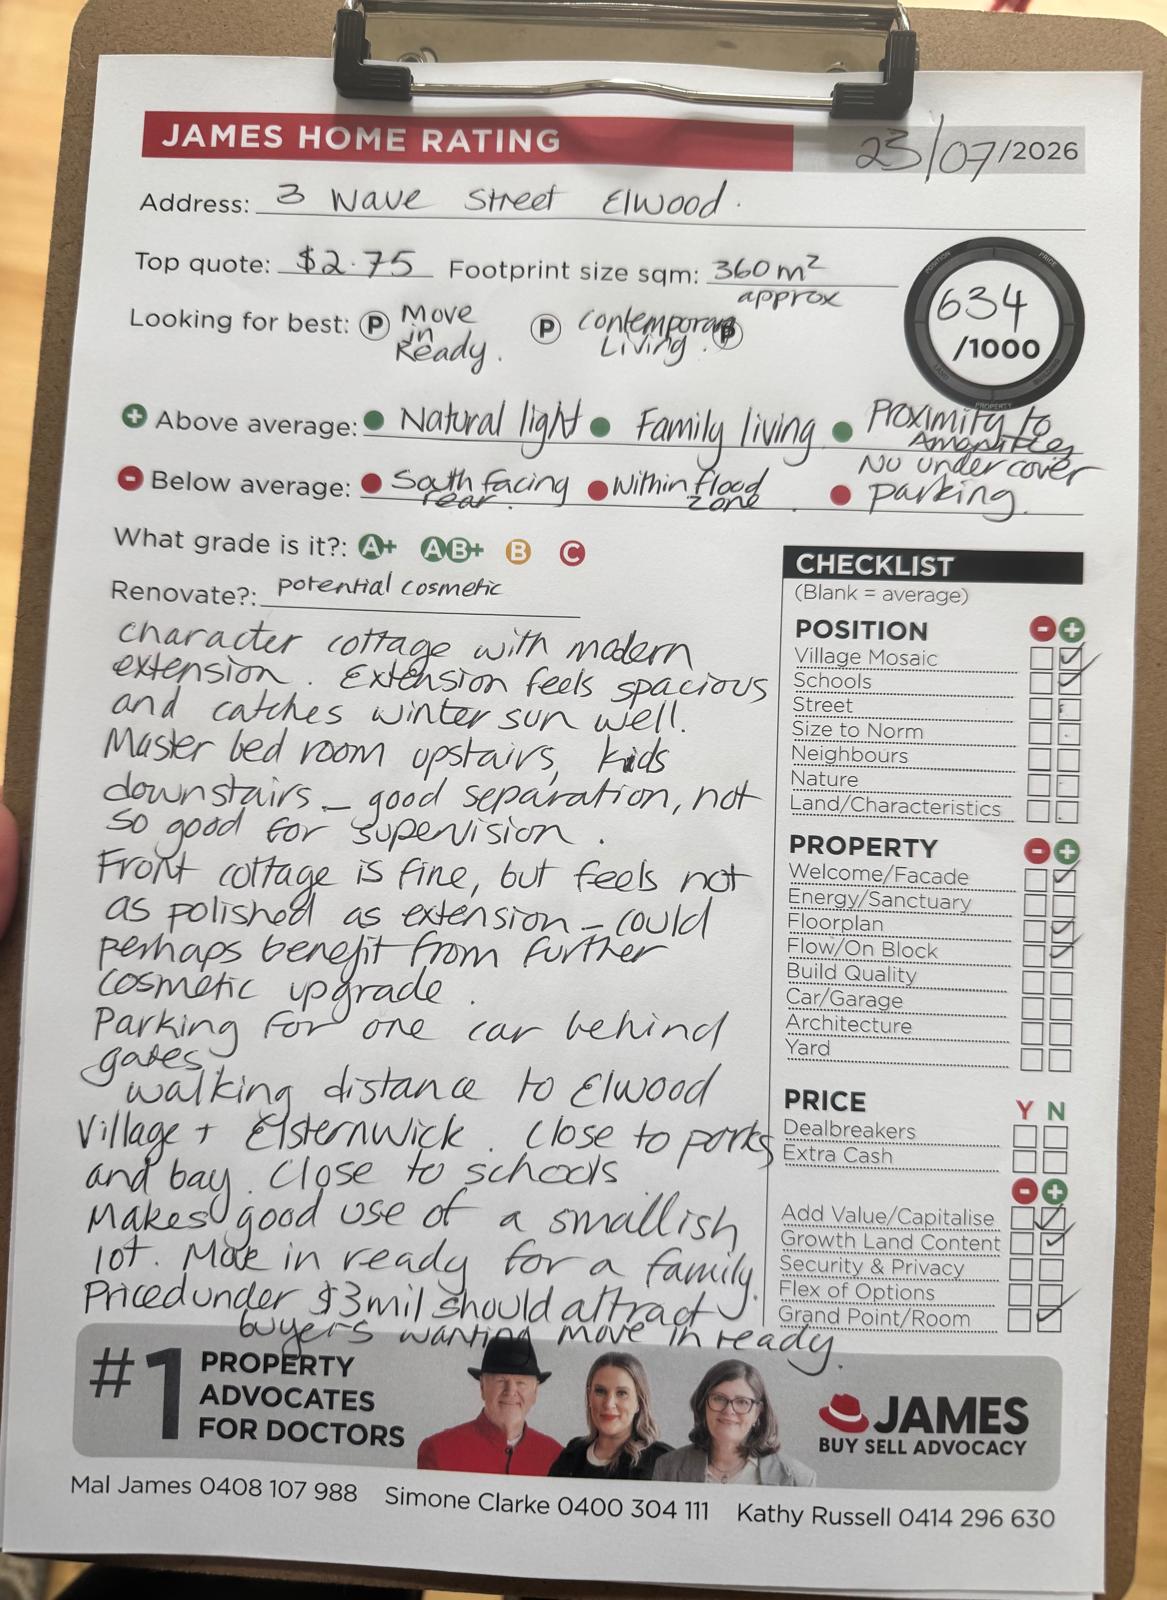 JAMES HOME RATING 23/07/2026
Address: 3 Wave Street Elwood.
Top quote: $2.75 Footprint size sqm: 360m² approx
634 /1000
POSITION PRICE LAND BUILDING PROPERTY
Looking for best: P Move in Ready. P contemporary Living. P
+ Above average: Natural light Family living Proximity to Amenities
- Below average: South facing rear. Within flood zone. No under cover parking.
What grade is it?: A+ AB+ B C
Renovate?: potential cosmetic
character cottage with modern
extension. Extension feels spacious
and catches winter sun well.
Master bed room upstairs, kids
downstairs – good separation, not
so good for supervision.
Front cottage is fine, but feels not
as polished as extension – could
perhaps benefit from further
cosmetic upgrade.
Parking for one car behind
gates
walking distance to Elwood
Village + Elsternwick. Close to parks
and bay. Close to schools
Makes good use of a smallish
lot. Move in ready for a family.
Priced under $3mil should attract
buyers wanting move in ready.
CHECKLIST
(Blank = average)
POSITION - +
Village Mosaic ✓
Schools ✓
Street
Size to Norm
Neighbours
Nature
Land/Characteristics
PROPERTY - +
Welcome/Facade ✓
Energy/Sanctuary
Floorplan ✓
Flow/On Block ✓
Build Quality
Car/Garage
Architecture
Yard
PRICE Y N
Dealbreakers
Extra Cash
- +
Add Value/Capitalise ✓
Growth Land Content ✓
Security & Privacy
Flex of Options
Grand Point/Room ✓
#1 PROPERTY
ADVOCATES
FOR DOCTORS
JAMES
BUY SELL ADVOCACY
Mal James 0408 107 988 Simone Clarke 0400 304 111 Kathy Russell 0414 296 630